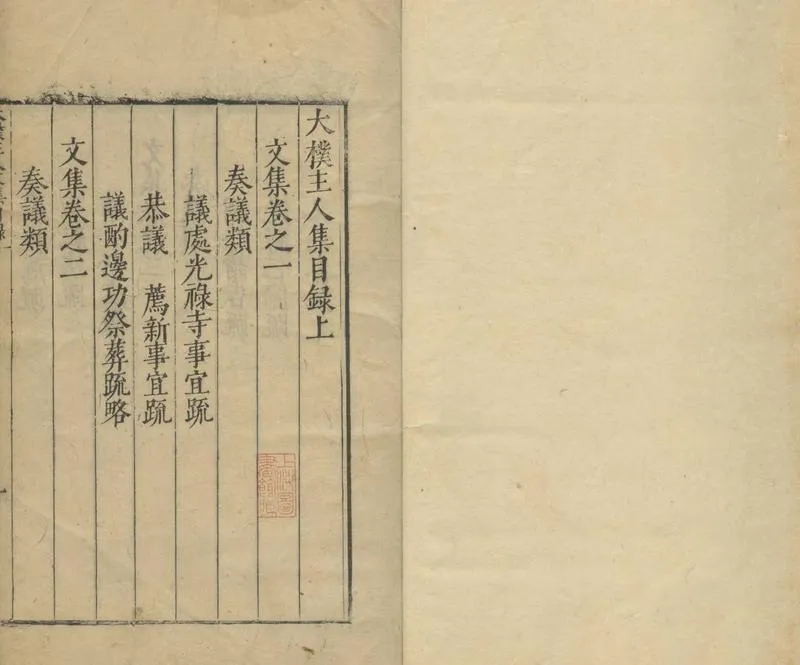 大樸主人集目録上
文集卷之一
奏議類
議處光祿寺事宜䟽
恭議　薦新事宜䟽
議酌邊功祭葬䟽略
文集卷之二
奏議類
上海圖書館藏